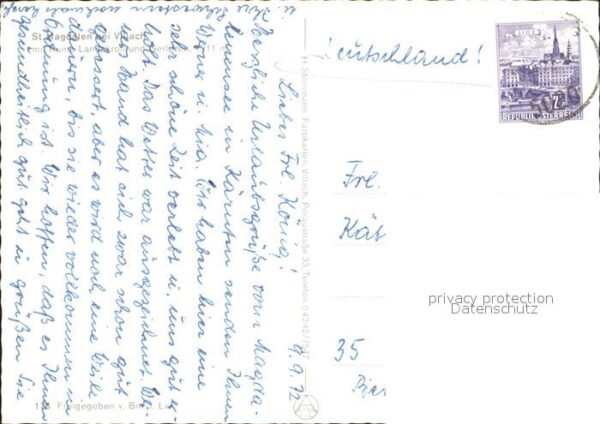 St. Magdalen bei Villach
mit Ruine Landskron und Gerlitze 1911 m
9.9.72
Liebes Frl. König!
Herzliche Urlaubsgrüße vom Magda-
lenensee in Kärnten senden Ihnen
u. Mia. Wir haben hier eine
sehr schöne Zeit verlebt u. uns gut er-
holt. Das Wetter war ausgezeichnet. Die
Hand hat sich zwar schon gut
gebessert, aber es wird noch eine Weile
dauern, bis sie wieder vollkommen in
Ordnung ist. Wir hoffen, daß es Ihnen
gesundheitlich gut geht u. grüßen Sie
u. Ihre Schwestern
Deutschland!
REPUBLIK ÖSTERREICH
Frl.
Kät
35
privacy protection
Datenschutz
Farbkarten, Villach, Telefon
Freigegeben v. BmfLv.